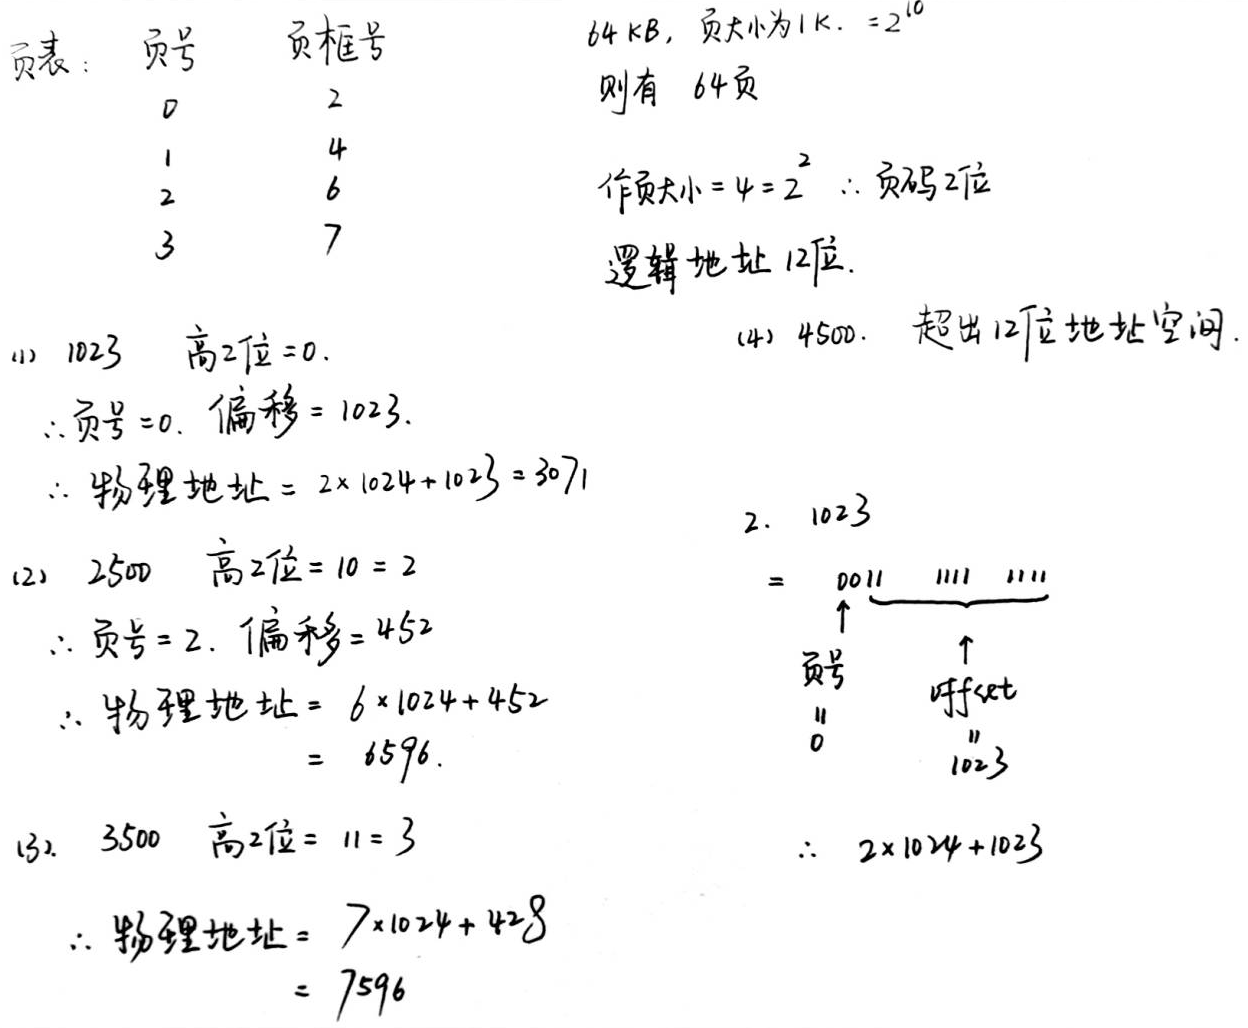 页表: 页号 页框号
0 2
1 4
2 6
3 7
64KB, 页大小为1K. =2^10
则有 64页
作页大小=4=2^2 ∴页码2位
逻辑地址12位.
(1) 1023 高2位=0.
∴页号=0. 偏移=1023.
∴物理地址=2×1024+1023=3071
(2) 2500 高2位=10=2
∴页号=2. 偏移=452
∴物理地址=6×1024+452
=6596.
(3). 3500 高2位=11=3
∴物理地址=7×1024+428
=7596
(4) 4500. 超出12位地址空间.
2. 1023
= 0011 1111 1111
↑ ↑
页号 offset
〃 〃
0 1023
∴ 2×1024+1023